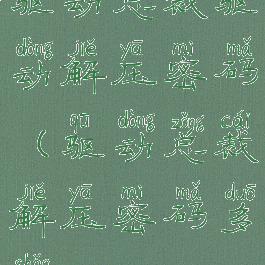 驱动总裁驱
dòng jiě yā mì mǎ
动解压密码
qū dòng zǒng cái
（驱动总裁
jiě yā mì mǎ duō
解压密码多
shǎo